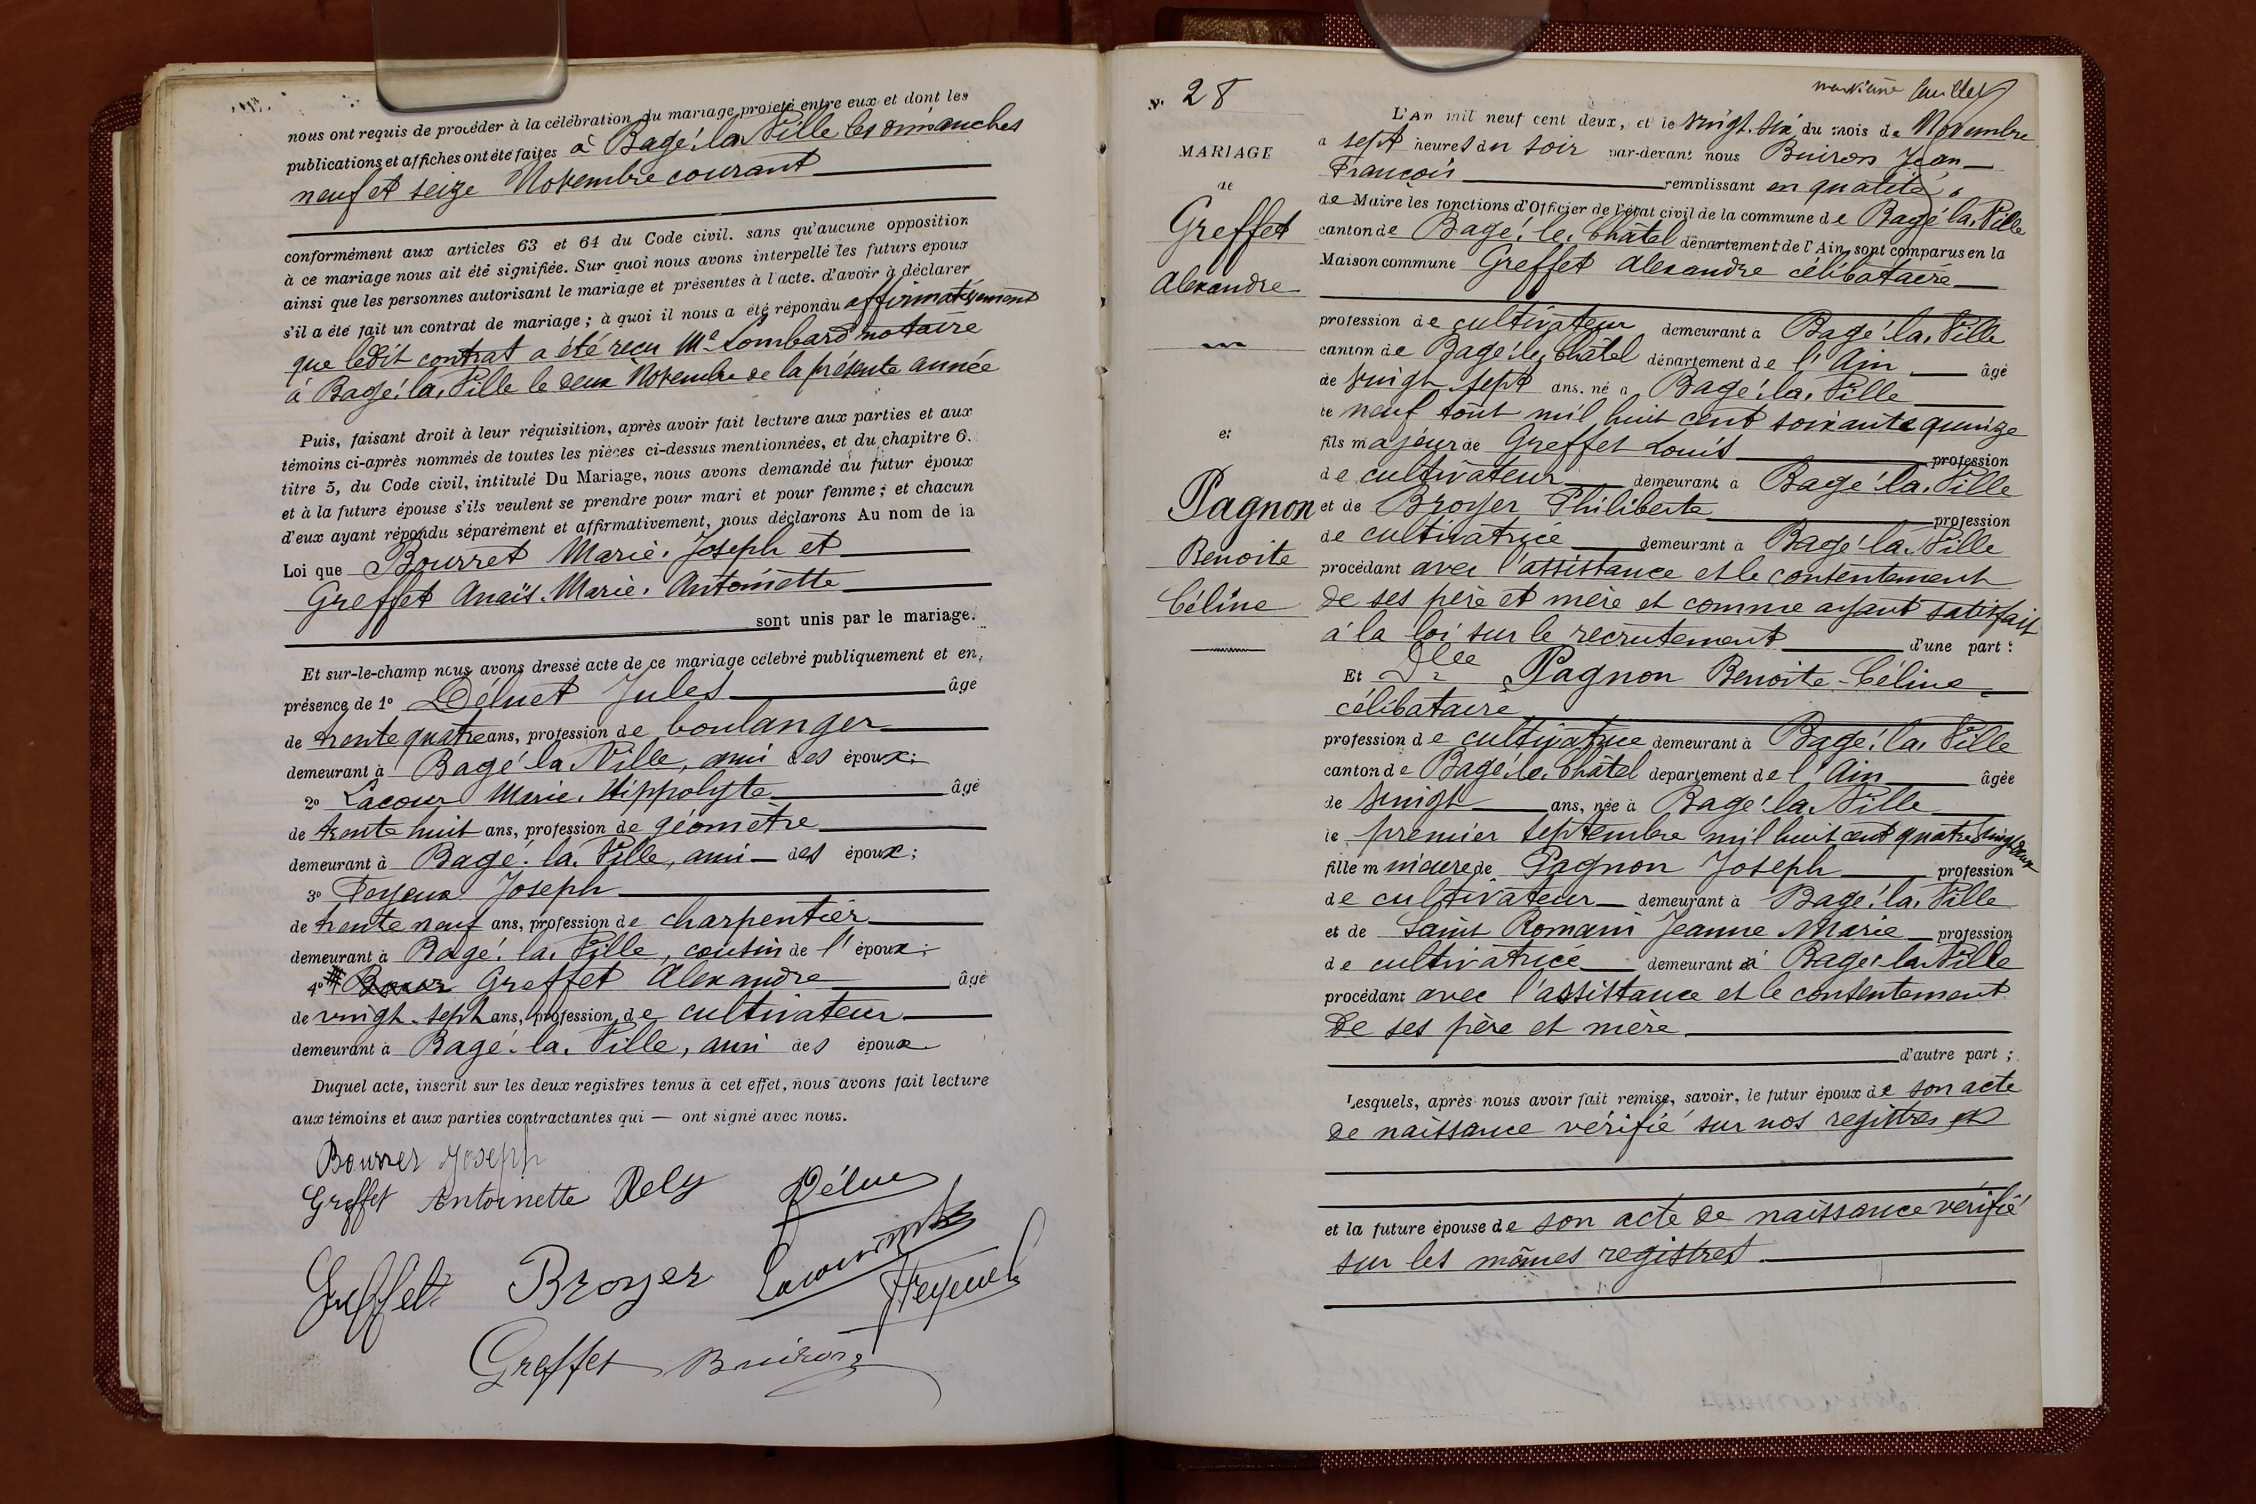 nous ont requis de procéder à la célébration du mariage projeté entre eux et dont les
publications et affiches ont été faites à Bagé-la-Ville les dimanches
neuf et seize Novembre courant
conformément aux articles 63 et 64 du Code civil. sans qu'aucune opposition
à ce mariage nous ait été signifiée. Sur quoi nous avons interpellé les futurs époux
ainsi que les personnes autorisant le mariage et présentes à l'acte, d'avoir à déclarer
s'il a été fait un contrat de mariage ; à quoi il nous a été répondu affirmativement
que ledit contrat a été reçu Me Lombard notaire
à Bagé-la-Ville le deux Novembre de la présente année
Puis, faisant droit à leur réquisition, après avoir fait lecture aux parties et aux
témoins ci-après nommés de toutes les pièces ci-dessus mentionnées, et du chapitre 6.
titre 5, du Code civil, intitulé Du Mariage, nous avons demandé au futur époux
et à la future épouse s'ils veulent se prendre pour mari et pour femme ; et chacun
d'eux ayant répondu séparément et affirmativement, nous déclarons Au nom de la
Loi que Bourret Marie-Joseph et
Greffet Anaïs-Marie-Antoinette
sont unis par le mariage.
Et sur-le-champ nous avons dressé acte de ce mariage célébré publiquement et en
présence de 1° Déluet Jules âgé
de trente quatre ans, profession de boulanger
demeurant à Bagé la Ville, ami des époux ;
2° Lacour Marie-Hippolyte âgé
de trente huit ans, profession de géomètre
demeurant à Bagé-la-Ville, ami des époux ;
3° Joseph
de trente neuf ans, profession de charpentier
demeurant à Bagé-la-Ville, cousin de l'époux ;
4° Greffet Alexandre âgé
de vingt-sept ans, profession de cultivateur
demeurant à Bagé-la-Ville, ami des époux
Duquel acte, inscrit sur les deux registres tenus à cet effet, nous avons fait lecture
aux témoins et aux parties contractantes qui — ont signé avec nous.
Bourret Joseph
Greffet Antoinette Rely Délue
Greffet Broyer
Greffet Buiron
N° 28
MARIAGE
de
Greffet
Alexandre
et
Pagnon
Benoite
Céline
L'An mil neuf cent deux, et le vingt-six du mois de Novembre
à sept heures du soir par-devant nous Buiron Jean
François remplissant en qualité
de Maire les fonctions d'Officier de l'état civil de la commune de Bagé-la-Ville
canton de Bagé-le-Châtel département de l'Ain, sont comparus en la
Maison commune Greffet Alexandre célibataire
profession de cultivateur demeurant à Bagé-la-Ville
canton de Bagé-le-Châtel département de l'Ain âgé
de vingt-sept ans, né à Bagé-la-Ville
le neuf août mil huit cent soixante quinze
fils majeur de Greffet Louis profession
de cultivateur demeurant à Bagé-la-Ville
et de Broyer Philiberte profession
de cultivatrice demeurant à Bagé-la-Ville
procédant avec l'assistance et le consentement
de ses père et mère et comme ayant satisfait
à la loi sur le recrutement d'une part :
Et Dlle Pagnon Benoite-Céline
célibataire
profession de cultivatrice demeurant à Bagé-la-Ville
canton de Bagé-le-Châtel département de l'Ain âgée
de vingt ans, née à Bagé-la-Ville
le premier septembre mil huit cent quatre vingt deux
fille mineure de Pagnon Joseph profession
de cultivateur demeurant à Bagé-la-Ville
et de Saint Romain Jeanne Marie profession
de cultivatrice demeurant à Bagé-la-Ville
procédant avec l'assistance et le consentement
de ses père et mère
d'autre part ;
Lesquels, après nous avoir fait remise, savoir, le futur époux de son acte
de naissance vérifié sur nos registres et
et la future épouse de son acte de naissance vérifié
sur les mêmes registres